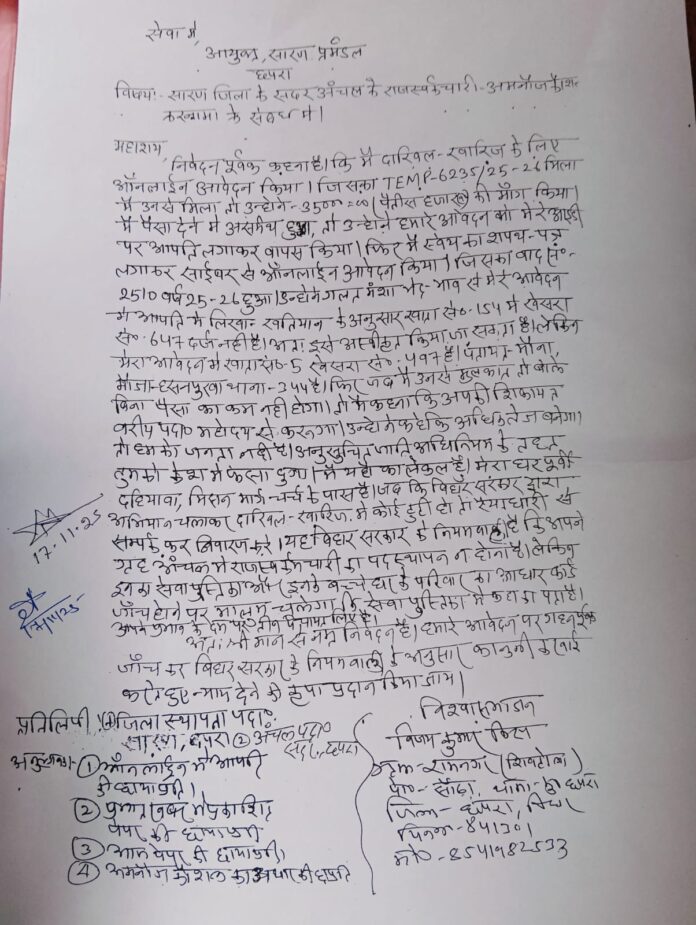 सेवा में,
आयुक्त, सारण प्रमंडल
छपरा
विषय:- सारण जिला के सदर अँचल के राजस्वकर्मचारी - अमनौज कौशल
के संबंध में।
महाशय,
निवेदन पूर्वक कहना है। कि मैं दाखिल-खारिज के लिए
ऑनलाईन आवेदन किया। जिसका TEMP-6235/25-26 मिला
मैं उनसे मिला तो उन्होने - 35000=00 (पैतीस हजार रू) की माँग किया।
मैं पैसा देने में असमर्थ हुआ, तो उन्होने हमारे आवेदन को मेरे आईडी
पर आपति लगाकर वापस किया। फिर मैं स्वंय का शपथ-पत्र
लगाकर साईबर से ऑनलाईन आवेदन किया। जिसका वाद सं०-
2510 वर्ष 25-26 हुआ। उन्होने गलत मंशा भेद-भाव से मेरे आवेदन
में आपति में लिखा- खतियान के अनुसार खाता सं०-154 में खेसरा
सं०- 647 दर्ज नही है। अतः इसे अस्वीकृत किया जा सकता है। लेकिन
मेरा आवेदन में खाता सं०-5 खेसरा सं०- 497 है। पंचायत- मौना,
मौजा- थाना-344 है। फिर जब मैं उनसे मुलकात तो बोले
बिना पैसा का कम नही होगा। तो मैं कहा कि आपकी शिकायत
वरीय पदा० महोदय से करूगा। उन्होने कहे कि अधिक तेज बनेगा।
तो हमको जनता नही है। अनुसुचित जाति अधिनियम के तहत
तुमको केश में फंसा दुगा। मैं यही का लोकल है। मेरा घर पूर्वी
दहियावा, मिशन मार्ग चर्च के पास है। जब कि बिहार सरकार द्वारा
अभियान चलाकर दाखिल-खारिज में कोई त्रुटी हो तो रैयतधारी से
सम्पर्क कर निवारण करे। यह बिहार सरकार के नियमावली है कि अपने
गृह अँचल में राजस्वकर्मचारी का पदस्थापन न होना है। लेकिन
इनका सेवा पुस्तिका और इनके बच्चे के परिवार का आधार कार्ड
जाँच होने पर मालूम चलेगा कि सेवा पुस्तिका में कहा का पता है।
अपने प्रभाव के दम पर
अतः श्रीमान से नम्र निवेदन है। हमारे आवेदन पर गहनपूर्वक
जाँच कर बिहार सरकार के नियमावली के अनुसार कानुनी करवाई
करते हुए न्याय देने की कृपा प्रदान किया जाय।
17.11.25
17/11/25
प्रतिलिपी ① जिला स्थापना पदा०
सारण, छपरा ② अँचल पदा०
सदर, छपरा
अनुलग्नक- ① ऑन लाईन में आपति
की छायाप्रति।
② प्रकाशित
पेपर की छायाप्रति
③ पेपर की छायाप्रति।
④ अमनौज कौशल का की छाप्रति
विश्वासभाजन
विजय कुमार
ग्राम- रामनगर
पो०- थाना- छपरा
जिला- छपरा, बिहार
पिनकोड- 841301
मो०- 8541982533